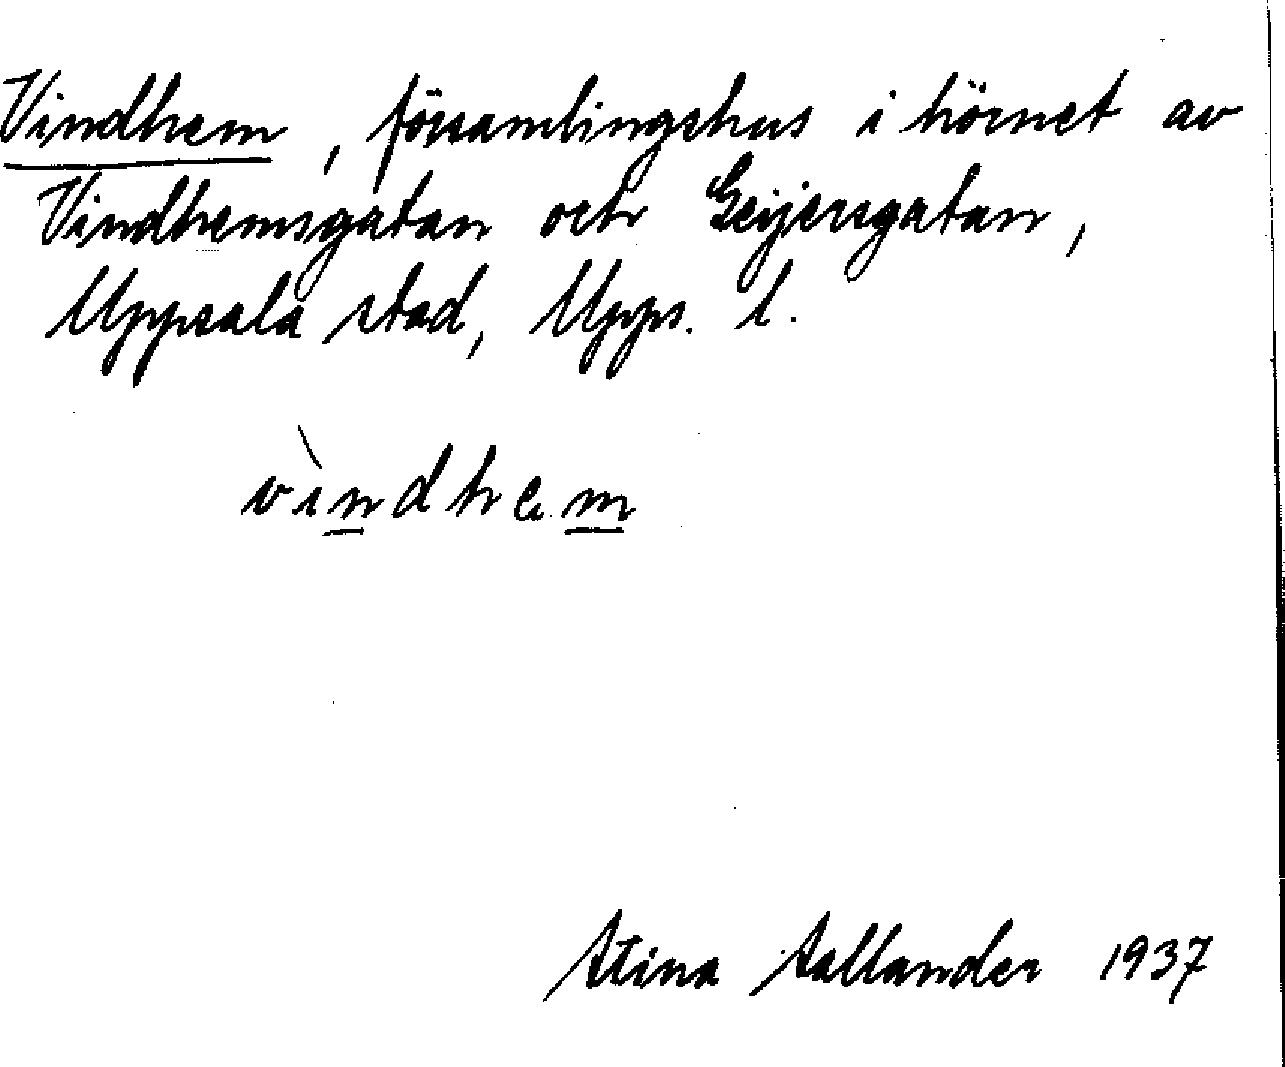 Vindhem, församlingshus i hörnet av
Vindhemsgatan och Geijersgatan,
Uppsala stad, Upps. l.
vìndhem
Stina Sallander 1937